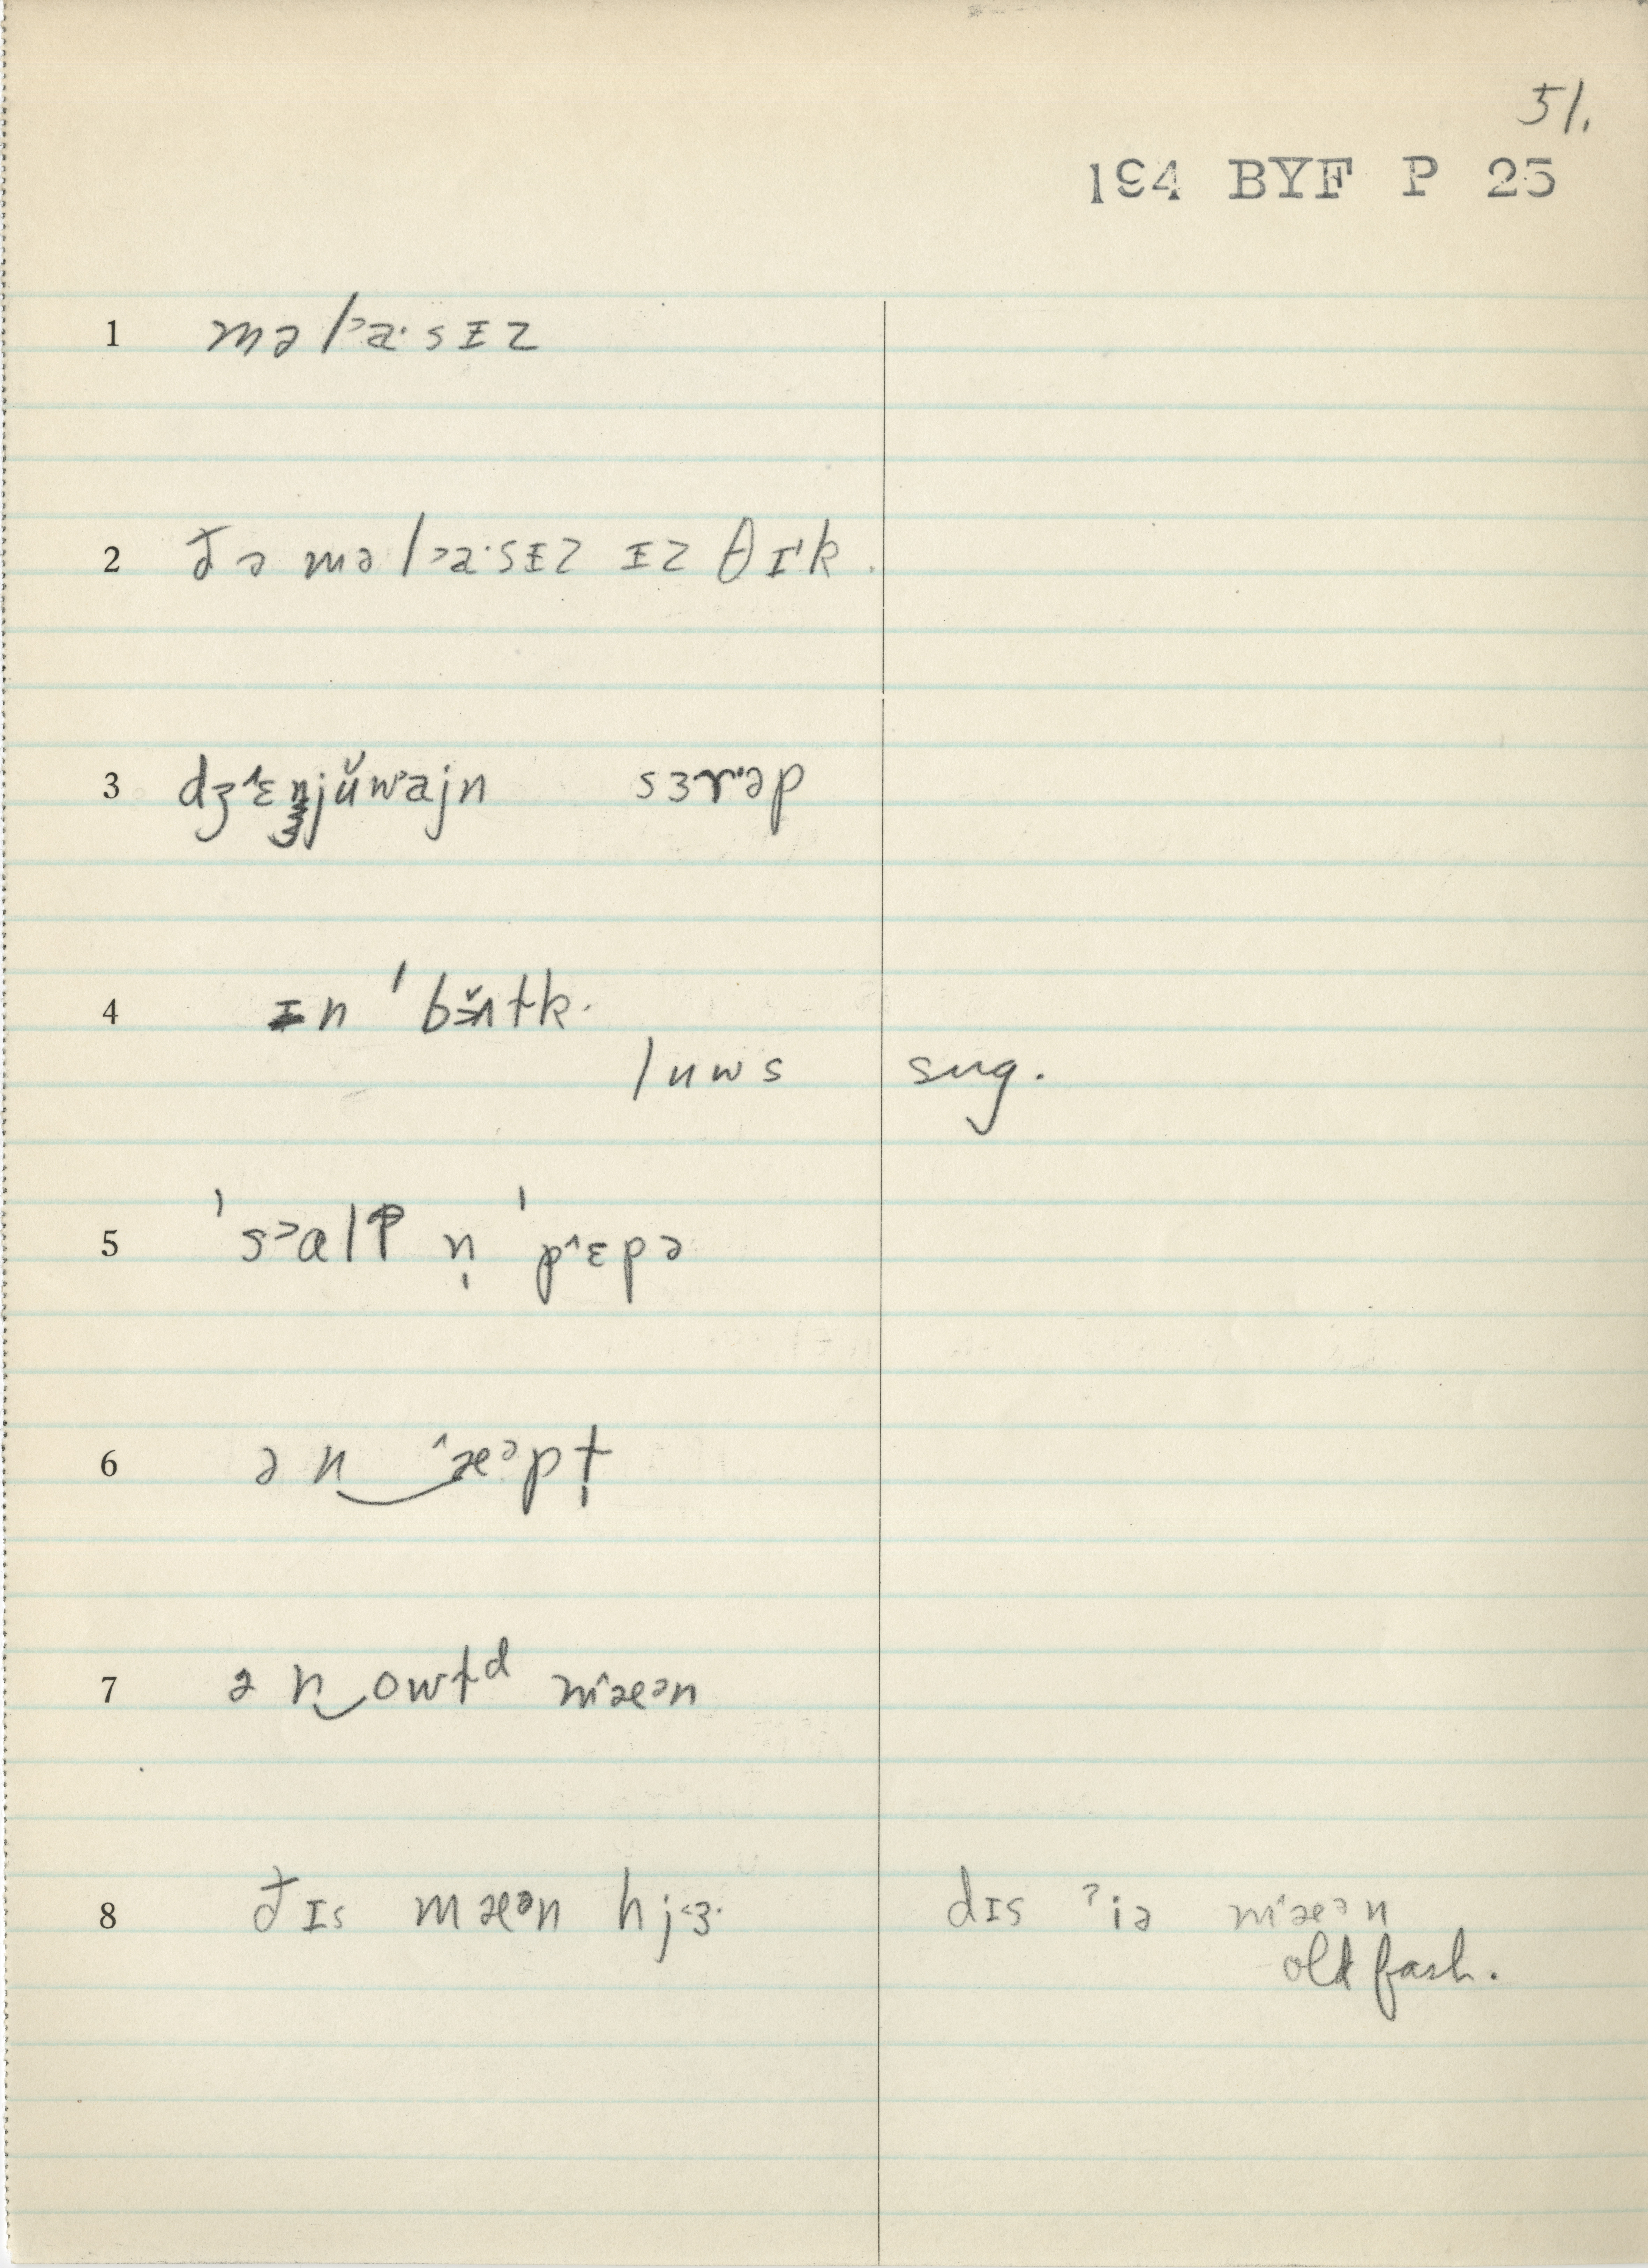 51.
194 BYF P 25
1 məl˃a·sɪ̵z
2 đə məl˃a·sɪ̵z ɪ̵z θɪ'k.
3 dʒ˄ɛnjŭw˃ajn sɜrəp
4 ɪ̵n 'bʌltk.
luws sug.
5 's˃alt n̩ 'p˄ɛpə
6 ən‿˄æᵊpt̩
7 ən‿owtᵈ m˄æᵊn
8 đɪs mæᵊn hj˂ɜ· dɪs ˀiə m˄æᵊn
old fash.